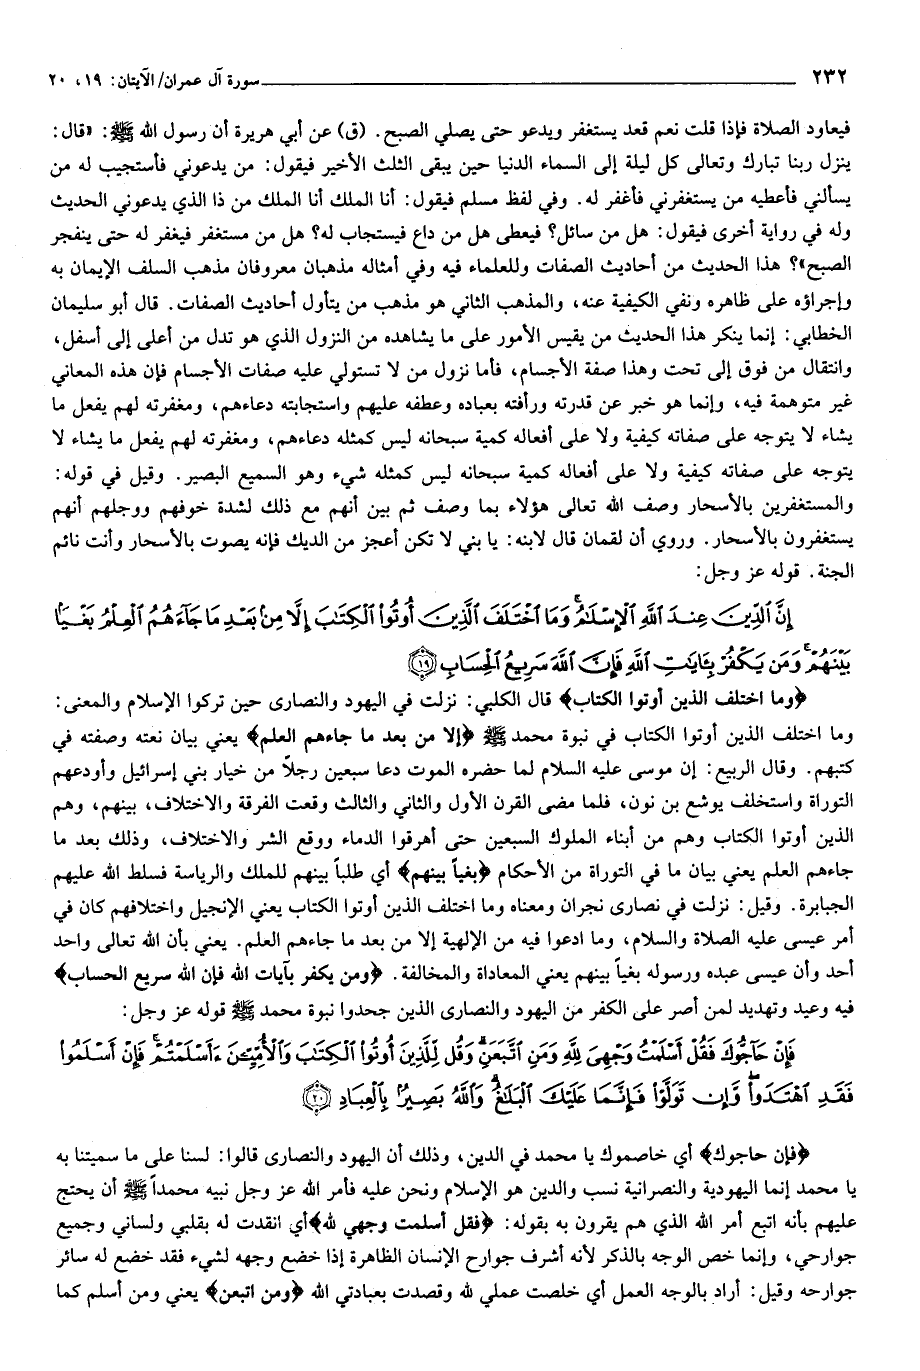 ٢٣٢ سورة آل عمران/ الآيتان: ١٩، ٢٠
فيعاود الصلاة فإذا قلت نعم قعد يستغفر ويدعو حتى يصلي الصبح. (ق) عن أبي هريرة أن رسول الله ﷺ: «قال:
ينزل ربنا تبارك وتعالى كل ليلة إلى السماء الدنيا حين يبقى الثلث الأخير فيقول: من يدعوني فأستجيب له من
يسألني فأعطيه من يستغفرني فأغفر له. وفي لفظ مسلم فيقول: أنا الملك أنا الملك من ذا الذي يدعوني الحديث
وله في رواية أخرى فيقول: هل من سائل؟ فيعطى هل من داع فيستجاب له؟ هل من مستغفر فيغفر له حتى ينفجر
الصبح»؟ هذا الحديث من أحاديث الصفات وللعلماء فيه وفي أمثاله مذهبان معروفان مذهب السلف الإيمان به
وإجراؤه على ظاهره ونفي الكيفية عنه، والمذهب الثاني هو مذهب من يتأول أحاديث الصفات. قال أبو سليمان
الخطابي: إنما ينكر هذا الحديث من يقيس الأمور على ما يشاهده من النزول الذي هو تدل من أعلى إلى أسفل،
وانتقال من فوق إلى تحت وهذا صفة الأجسام، فأما نزول من لا تستولي عليه صفات الأجسام فإن هذه المعاني
غير متوهمة فيه، وإنما هو خبر عن قدرته ورأفته بعباده وعطفه عليهم واستجابته دعاءهم، ومغفرته لهم يفعل ما
يشاء لا يتوجه على صفاته كيفية ولا على أفعاله كمية سبحانه ليس كمثله دعاءهم، ومغفرته لهم يفعل ما يشاء لا
يتوجه على صفاته كيفية ولا على أفعاله كمية سبحانه ليس كمثله شيء وهو السميع البصير. وقيل في قوله:
والمستغفرين بالأسحار وصف الله تعالى هؤلاء بما وصف ثم بين أنهم مع ذلك لشدة خوفهم ووجلهم أنهم
يستغفرون بالأسحار. وروي أن لقمان قال لابنه: يا بني لا تكن أعجز من الديك فإنه يصوت بالأسحار وأنت نائم
الجنة. قوله عز وجل:
إِنَّ ٱلدِّينَ عِندَ ٱللَّهِ ٱلْإِسْلَٰمُ ۗ وَمَا ٱخْتَلَفَ ٱلَّذِينَ أُوتُوا۟ ٱلْكِتَٰبَ إِلَّا مِنۢ بَعْدِ مَا جَآءَهُمُ ٱلْعِلْمُ بَغْيًۢا
بَيْنَهُمْ ۗ وَمَن يَكْفُرْ بِـَٔايَٰتِ ٱللَّهِ فَإِنَّ ٱللَّهَ سَرِيعُ ٱلْحِسَابِ ﴿١٩﴾
﴿وما اختلف الذين أوتوا الكتاب﴾ قال الكلبي: نزلت في اليهود والنصارى حين تركوا الإسلام والمعنى:
وما اختلف الذين أوتوا الكتاب في نبوة محمد ﷺ ﴿إلا من بعد ما جاءهم العلم﴾ يعني بيان نعته وصفته في
كتبهم. وقال الربيع: إن موسى عليه السلام لما حضره الموت دعا سبعين رجلاً من خيار بني إسرائيل وأودعهم
التوراة واستخلف يوشع بن نون، فلما مضى القرن الأول والثاني والثالث وقعت الفرقة والاختلاف، بينهم، وهم
الذين أوتوا الكتاب وهم من أبناء الملوك السبعين حتى أهرقوا الدماء ووقع الشر والاختلاف، وذلك بعد ما
جاءهم العلم يعني بيان ما في التوراة من الأحكام ﴿بغياً بينهم﴾ أي طلباً بينهم للملك والرياسة فسلط الله عليهم
الجبابرة. وقيل: نزلت في نصارى نجران ومعناه وما اختلف الذين أوتوا الكتاب يعني الإنجيل واختلافهم كان في
أمر عيسى عليه الصلاة والسلام، وما ادعوا فيه من الإلهية إلا من بعد ما جاءهم العلم. يعني بأن الله تعالى واحد
أحد وأن عيسى عبده ورسوله بغياً بينهم يعني المعاداة والمخالفة. ﴿ومن يكفر بآيات الله فإن الله سريع الحساب﴾
فيه وعيد وتهديد لمن أصر على الكفر من اليهود والنصارى الذين جحدوا نبوة محمد ﷺ قوله عز وجل:
فَإِنْ حَآجُّوكَ فَقُلْ أَسْلَمْتُ وَجْهِىَ لِلَّهِ وَمَنِ ٱتَّبَعَنِ ۗ وَقُل لِّلَّذِينَ أُوتُوا۟ ٱلْكِتَٰبَ وَٱلْأُمِّيِّـۧنَ ءَأَسْلَمْتُمْ ۚ فَإِنْ أَسْلَمُوا۟
فَقَدِ ٱهْتَدَوا۟ ۖ وَّإِن تَوَلَّوْا۟ فَإِنَّمَا عَلَيْكَ ٱلْبَلَٰغُ ۗ وَٱللَّهُ بَصِيرٌۢ بِٱلْعِبَادِ ﴿٢٠﴾
﴿فإن حاجوك﴾ أي خاصموك يا محمد في الدين، وذلك أن اليهود والنصارى قالوا: لسنا على ما سميتنا به
يا محمد إنما اليهودية والنصرانية نسب والدين هو الإسلام ونحن عليه فأمر الله عز وجل نبيه محمداً ﷺ أن يحتج
عليهم بأنه اتبع أمر الله الذي هم يقرون به بقوله: ﴿فقل أسلمت وجهي لله﴾ أي انقدت له بقلبي ولساني وجميع
جوارحي، وإنما خص الوجه بالذكر لأنه أشرف جوارح الإنسان الظاهرة إذا خضع وجهه لشيء فقد خضع له سائر
جوارحه وقيل: أراد بالوجه العمل أي خلصت عملي لله وقصدت بعبادتي الله ﴿ومن اتبعن﴾ يعني ومن أسلم كما